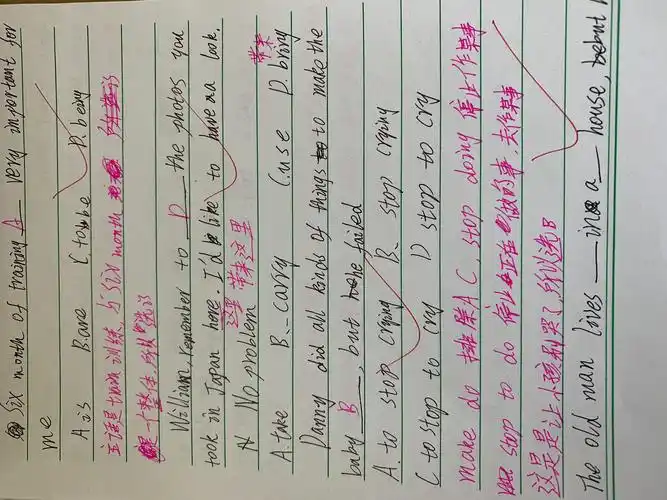 Six month of training A very important for
me
A is B are C to be D. being
主语是 训练, 与 six month
是一个整体, 所以选
William, remember to D the photos you
took in Japan here. I'd like to have a look.
这里 带来这里
N No problem 带来
A. take B. carry C. use D. bring
Danny did all kinds of things to make the
baby B, but he failed
A. to stop crying B. stop crying
C to stop to cry D stop to cry
make do 排除 A C, stop doing 停止作某事
stop to do 停止正在做的事, 去作某事
这是是让小孩别哭了, 所以选 B
The old man lives — in a — house, but